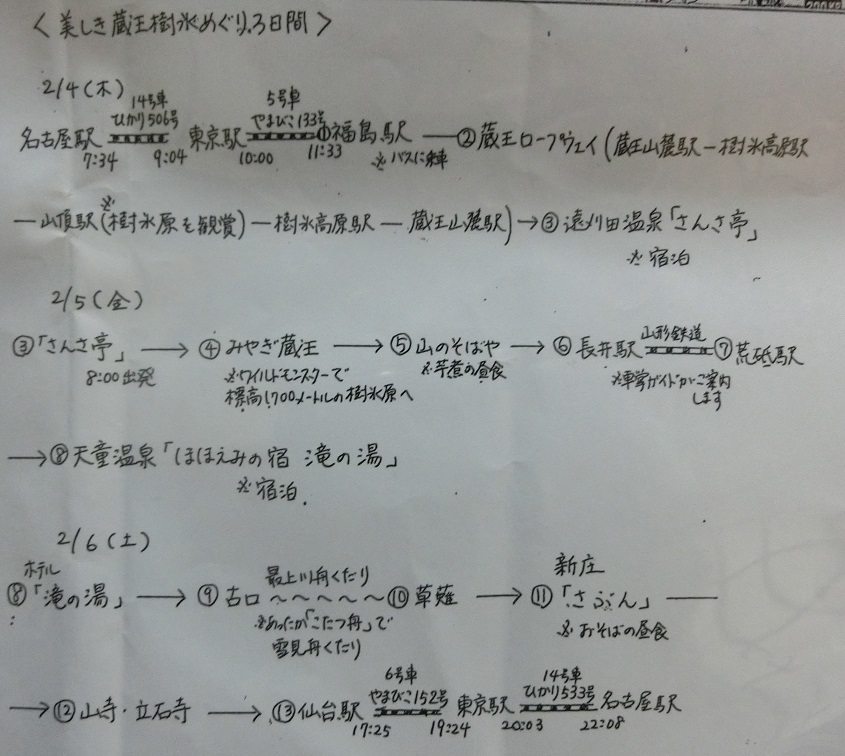 ＜美しき蔵王樹氷めぐり.3日間＞
2/4(木)
14号車 5号車
ひかり506号 やまびこ133号
名古屋駅 東京駅 ①福島駅 ―②蔵王ロープウェイ(蔵王山麓駅－樹氷高原駅
7:34 9:04 10:00 11:33 ※バスに乗車
※
―山頂駅(樹氷原を観賞)―樹氷高原駅― 蔵王山麓駅)→③遠刈田温泉「さんさ亭」
※宿泊
2/5(金)
山形鉄道
③「さんさ亭」→④みやぎ蔵王→⑤山のそばや→⑥長井駅 ⑦荒砥駅
8:00出発 ※ワイルドモンスターで ※芋煮の昼食 ※車掌ガイドがご案内
標高1,700メートルの樹氷原へ します
→⑧天童温泉「ほほえみの宿 滝の湯」
※宿泊.
2/6(土)
ホテル 最上川舟くだり 新庄
⑧「滝の湯」→⑨古口～～～～～⑩草薙→⑪「さぶん」―
※あったか「こたつ舟」で ※おそばの昼食
雪見舟くだり
6号車 14号車
やまびこ152号 ひかり533号
→⑫山寺・立石寺→⑬仙台駅 東京駅 名古屋駅
17:25 19:24 20:03 22:08